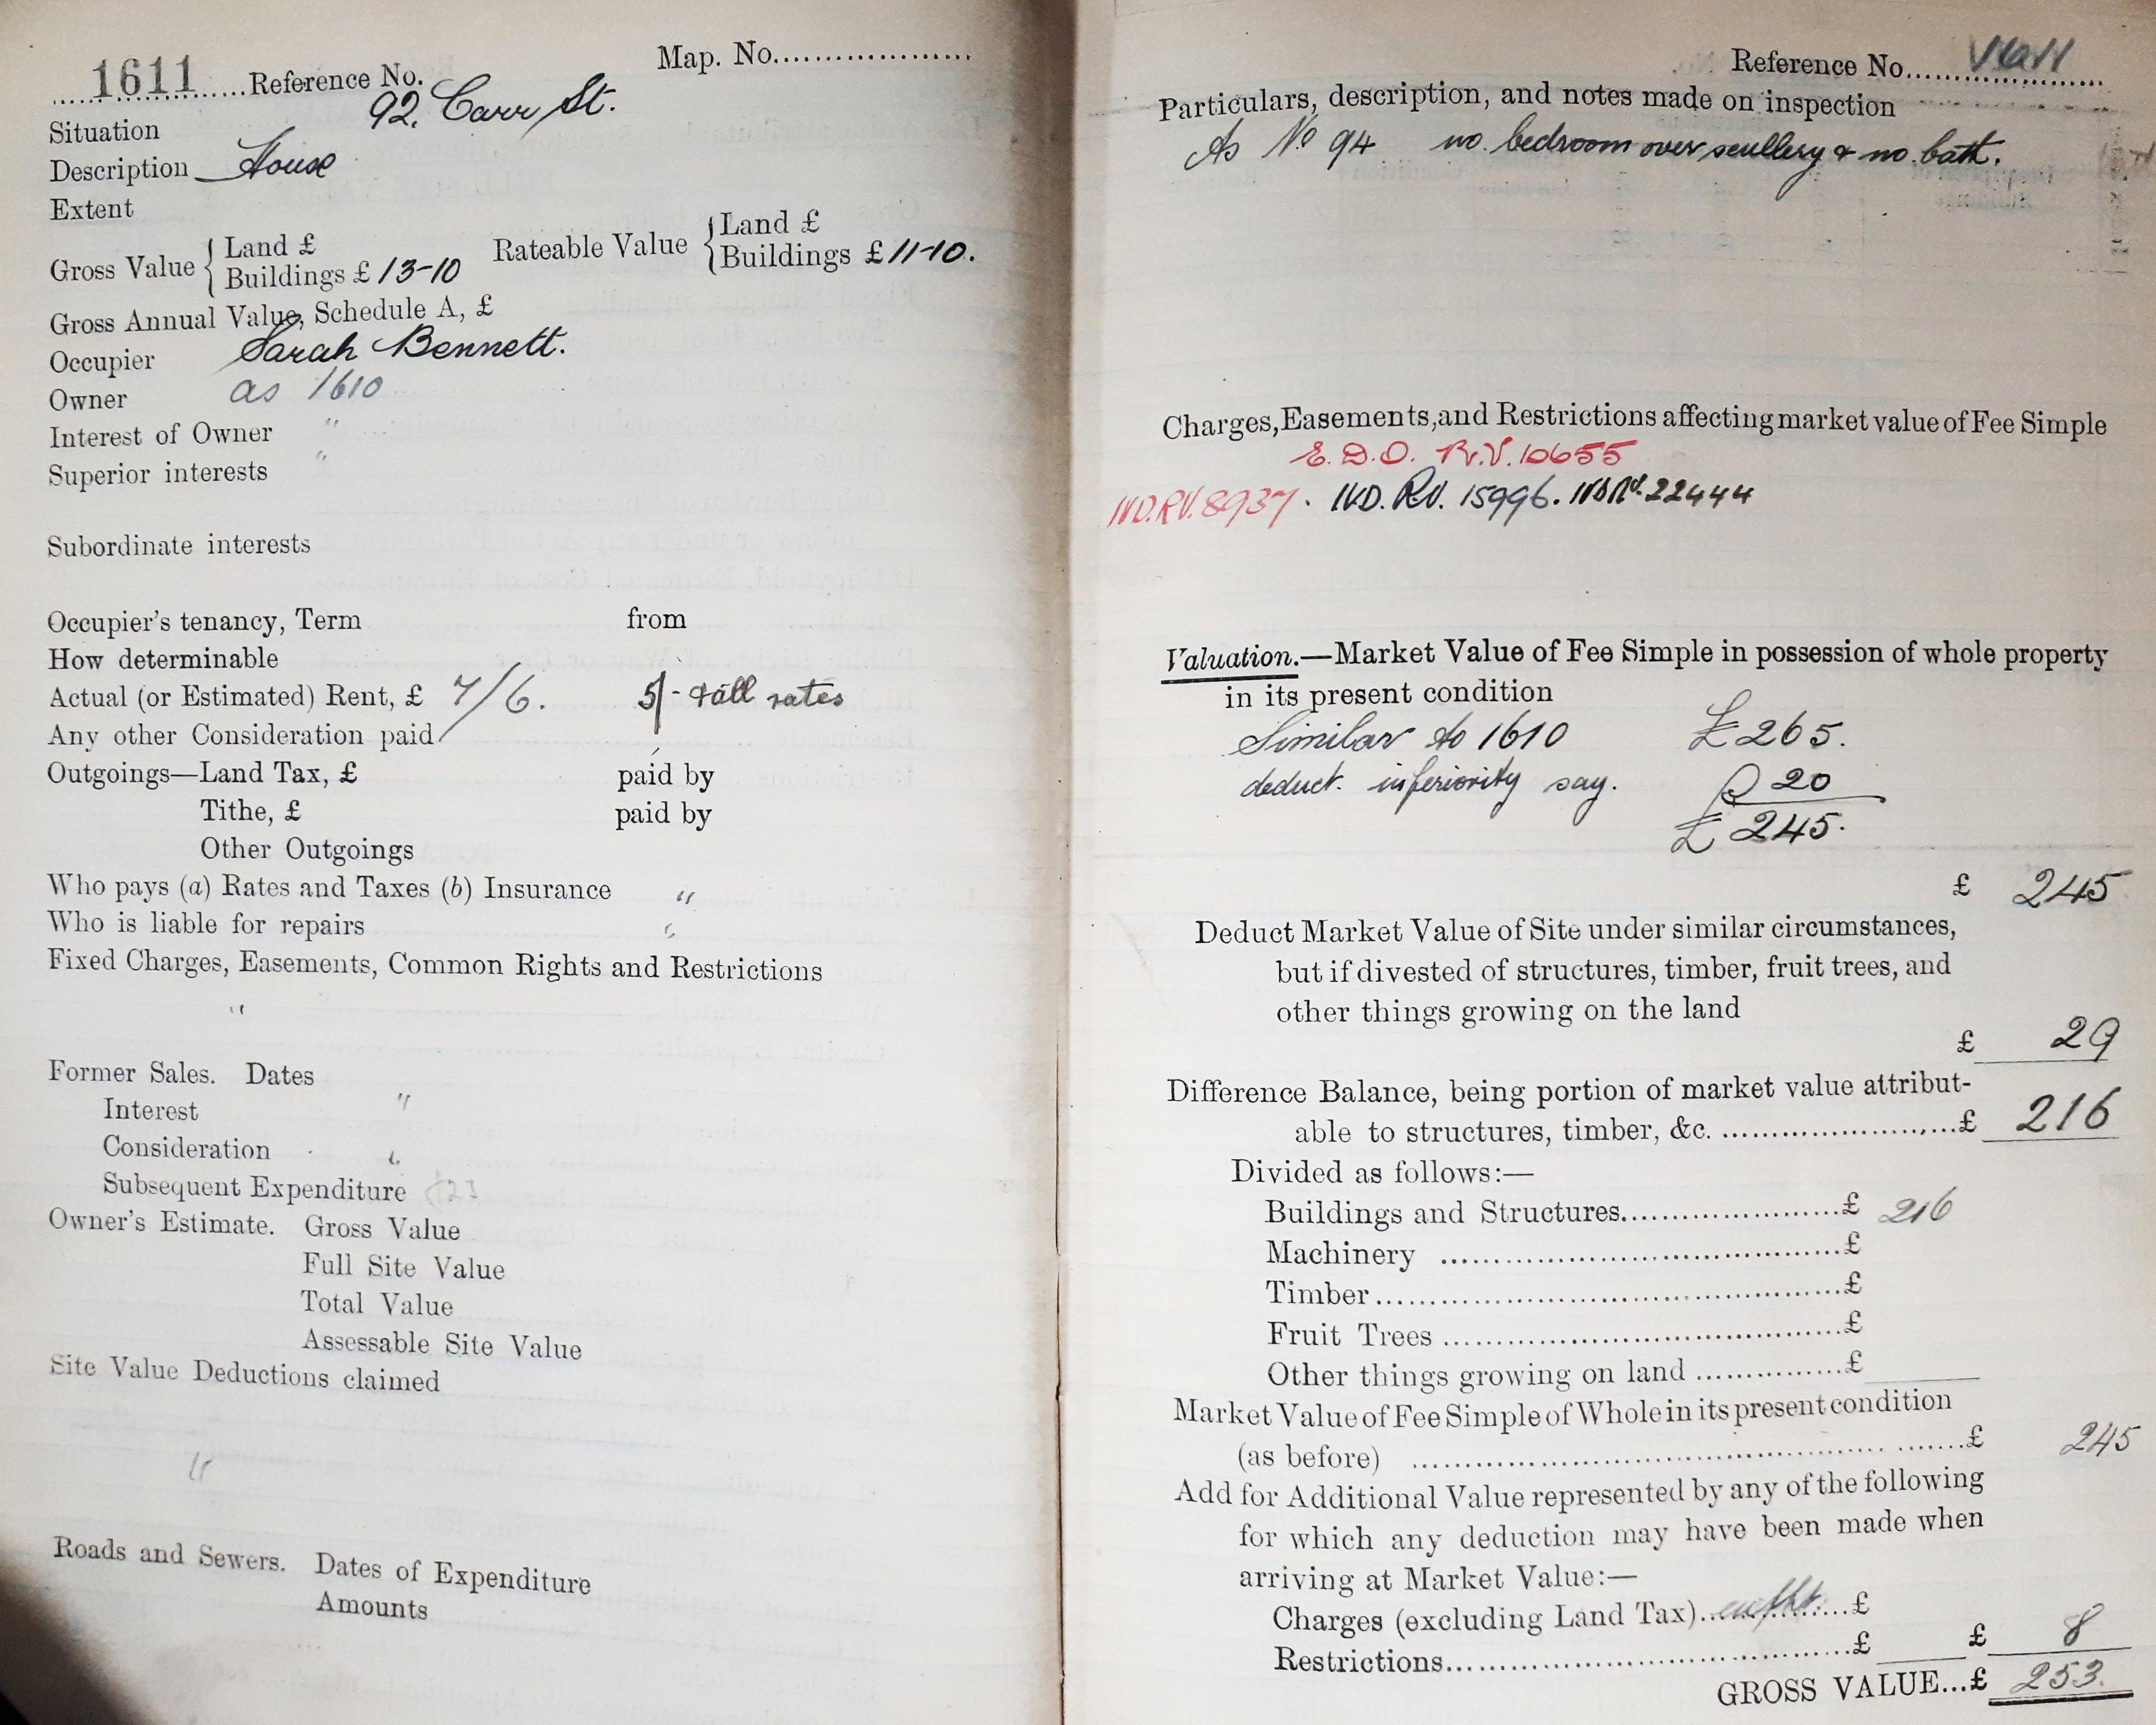 1611 Reference No. Map. No.
Situation 92, Carr St.
Description House
Extent
Gross Value { Land £ Rateable Value { Land £
Buildings £ 13-10 Buildings £ 11-10.
Gross Annual Value, Schedule A, £
Occupier Sarah Bennett.
Owner as 1610
Interest of Owner "
Superior interests "
Subordinate interests
Occupier's tenancy, Term from
How determinable
Actual (or Estimated) Rent, £ 7/6. 5/- & all rates
Any other Consideration paid
Outgoings—Land Tax, £ paid by
Tithe, £ paid by
Other Outgoings
Who pays (a) Rates and Taxes (b) Insurance "
Who is liable for repairs "
Fixed Charges, Easements, Common Rights and Restrictions
"
Former Sales. Dates
Interest "
Consideration "
Subsequent Expenditure
Owner's Estimate. Gross Value
Full Site Value
Total Value
Assessable Site Value
Site Value Deductions claimed
"
Roads and Sewers. Dates of Expenditure
Amounts
Reference No. 1611
Particulars, description, and notes made on inspection
As No 94 no bedroom over scullery & no bath.
Charges, Easements, and Restrictions affecting market value of Fee Simple
E.D.O. R.V. 10655
IVD. RV. 8937. IVD. RV. 15996. IVD RV. 22444
Valuation.—Market Value of Fee Simple in possession of whole property
in its present condition
Similar to 1610 £265.
deduct. inferiority say. 20
£ 245.
£ 245
Deduct Market Value of Site under similar circumstances,
but if divested of structures, timber, fruit trees, and
other things growing on the land
£ 29
Difference Balance, being portion of market value attribut-
able to structures, timber, &c. £ 216
Divided as follows:—
Buildings and Structures £ 216
Machinery £
Timber £
Fruit Trees £
Other things growing on land £
Market Value of Fee Simple of Whole in its present condition
(as before) £ 245
Add for Additional Value represented by any of the following
for which any deduction may have been made when
arriving at Market Value:—
Charges (excluding Land Tax) £
Restrictions £ £ 8
GROSS VALUE...£ 253.